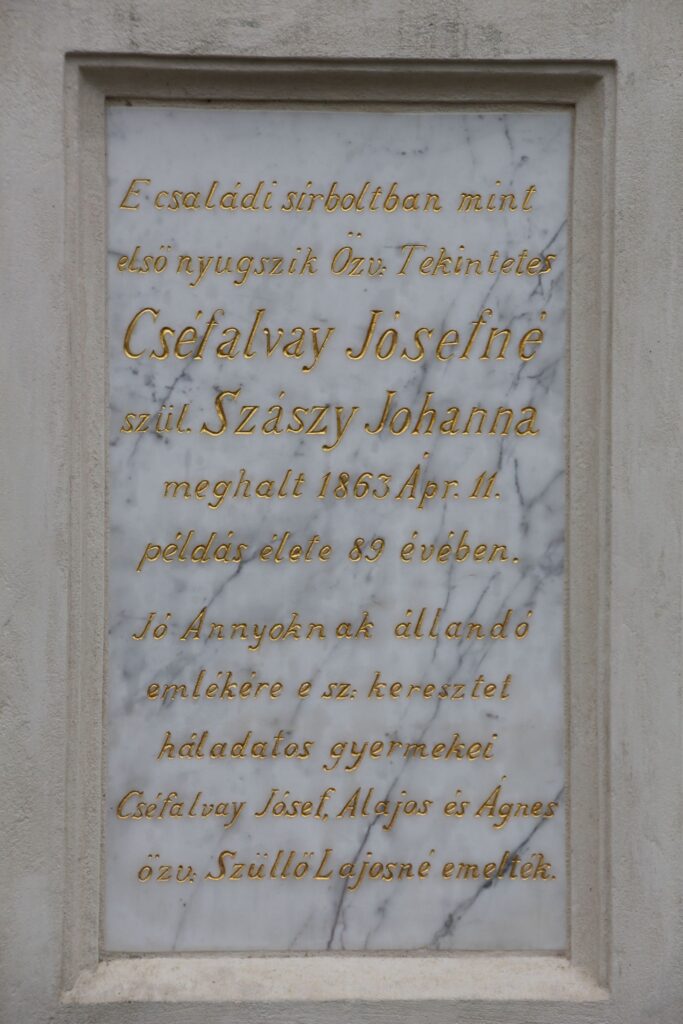 E családi sírboltban mint
első nyugszik Özv: Tekintetes
Cséfalvay Jósefné
szül. Szászy Johanna
meghalt 1863 Ápr. 11.
példás élete 89 évében.
Jó Annyoknak állandó
emlékére e sz: keresztet
háladatos gyermekei
Cséfalvay Jósef, Alajos és Ágnes
özv: Szüllő Lajosné emelték.